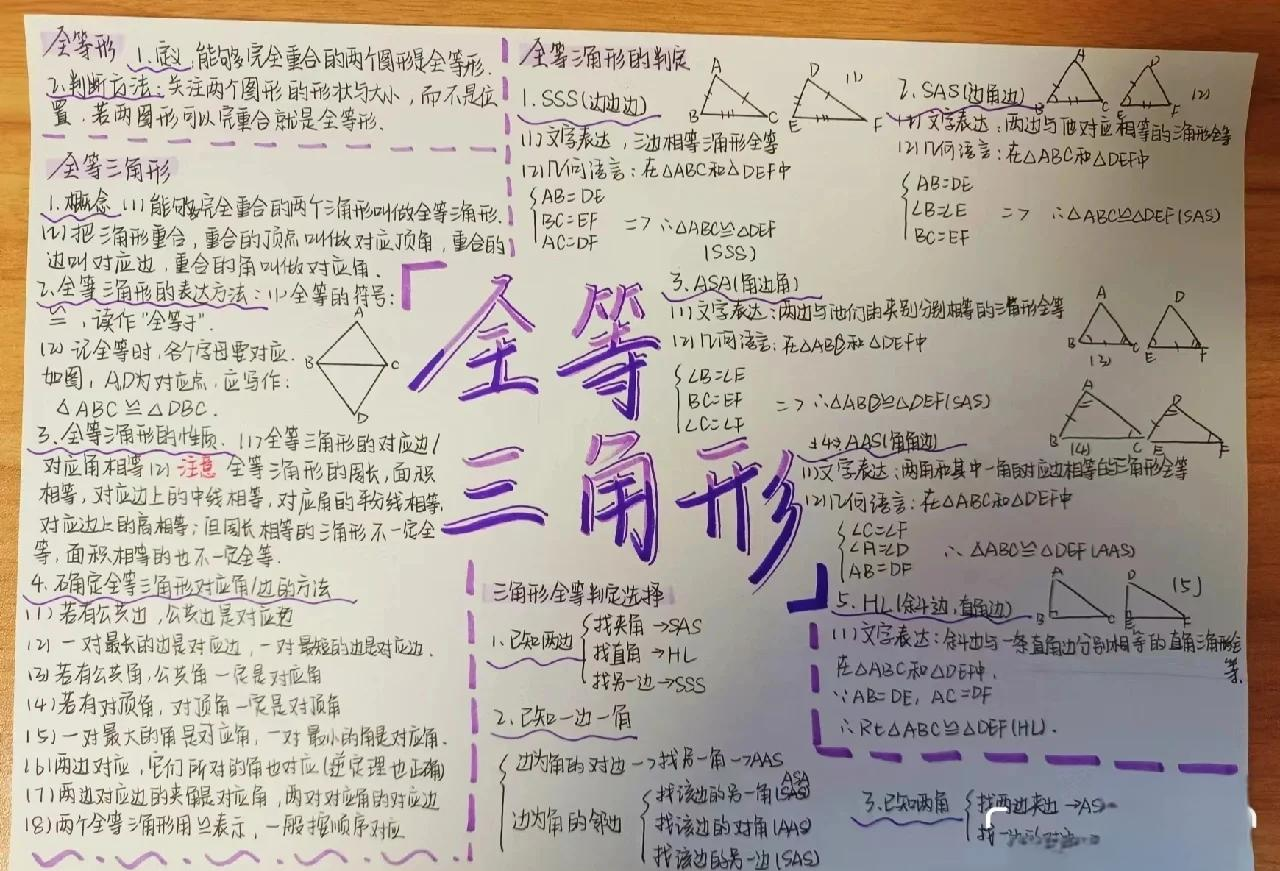 全等形
1.定义 能够完全重合的两个图形是全等形.
2.判断方法:关注两个图形的形状与大小,而不是位
置.若两图形可以完重合就是全等形.
全等三角形
1.概念 (1)能够完全重合的两个三角形叫做全等三角形.
(2)把三角形重合,重合的顶点叫做对应顶角,重合的
边叫对应边,重合的角叫做对应角.
2.全等三角形的表达方法:(1)全等的符号:
≌,读作"全等于".
(2)记全等时,各个字母要对应.
如图,A,D为对应点,应写作:
△ABC≌△DBC.
A
B
C
D
3.全等三角形的性质.(1)全等三角形的对应边/
对应角相等(2)注意 全等三角形的周长,面积
相等,对应边上的中线相等,对应角的平分线相等,
对应边上的高相等;但周长相等的三角形不一定全
等,面积相等的也不一定全等.
4.确定全等三角形对应角/边的方法
(1)若有公共边,公共边是对应边
(2)一对最长的边是对应边,一对最短的边是对应边.
(3)若有公共角,公共角一定是对应角
(4)若有对顶角,对顶角一定是对顶角
(5)一对最大的角是对应角,一对最小的角是对应角.
(6)两边对应,它们所对的角也对应(逆定理也正确)
(7)两边对应边的夹角是对应角,两对对应角的对应边
(8)两个全等三角形用≌表示,一般按顺序对应
「全等
三角形」
全等三角形的判定
1.SSS(边边边)
A
B
C
D
E
F
(1)
(1)文字表达,三边相等三角形全等
(2)几何语言:在△ABC和△DEF中
AB=DE
BC=EF => ∴△ABC≌△DEF
AC=DF
(SSS)
2.SAS(边角边)
A
B
C
D
E
F
(2)
(1)文字表达:两边与他对应相等的三角形全等
(2)几何语言:在△ABC和△DEF中
AB=DE
∠B=∠E => ∴△ABC≌△DEF(SAS)
BC=EF
3.ASA(角边角)
(1)文字表达:两边与他们的类别分别相等的三角形全等
(2)几何语言:在△ABC和△DEF中
∠B=∠E
BC=EF => ∴△ABC≌△DEF(SAS)
∠C=∠F
A
B
C
D
E
F
(3)
A
B
C
D
E
F
(4)
(4)AAS(角角边)
(1)文字表达:两角和其中一角的对应边相等的三角形全等
(2)几何语言:在△ABC和△DEF中
∠C=∠F
∠A=∠D ∴△ABC≌△DEF(AAS)
AB=DF
5.HL(斜边,直角边)
A
B
C
D
E
F
(5)
(1)文字表达:斜边与一条直角边分别相等的直角三角形全
等.
在△ABC和△DEF中.
∵AB=DE,AC=DF
∴Rt△ABC≌△DEF(HL).
三角形全等判定选择
1.已知两边
找夹角→SAS
找直角→HL
找另一边→SSS
2.已知一边一角
边为角的对边→找另一角→AAS
边为角的邻边
ASA
找该边的另一角(SAS)
找该边的对角(AAS)
找该边的另一边(SAS)
3.已知两角
找两边夹边→AS
找一